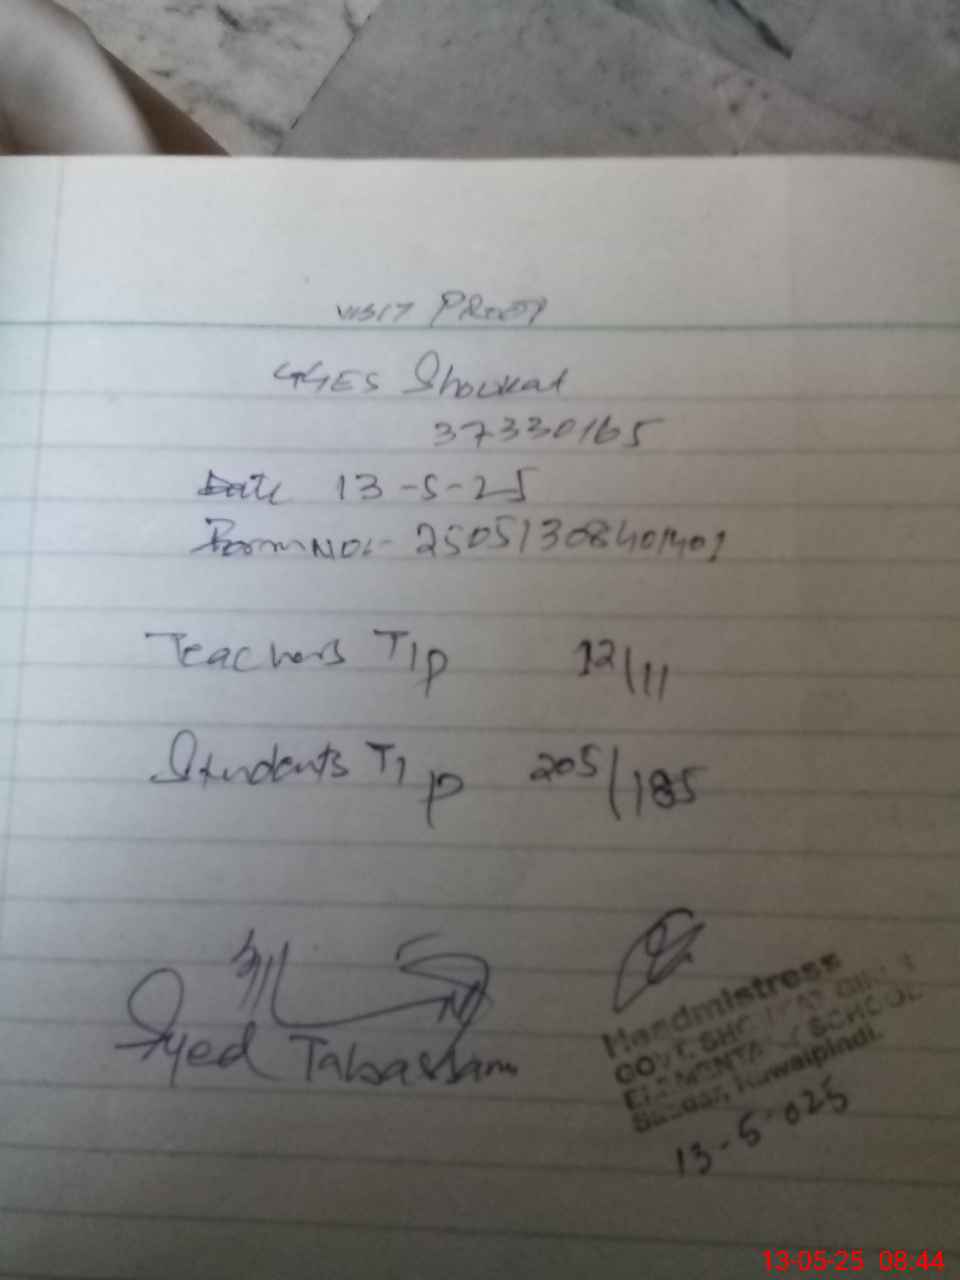 VISIT PROOF
GGES Shoukat
37330165
Date 13-5-25
Form No:- 25051308401401
Teachers T/p 12/11
Students T/p 205/185
Syed Tabassam
Headmistress
GOVT. SHOUKAT GIRLS
ELEMENTARY SCHOOL
Saddar, Rawalpindi.
13-5-025
13-05-25 08:44